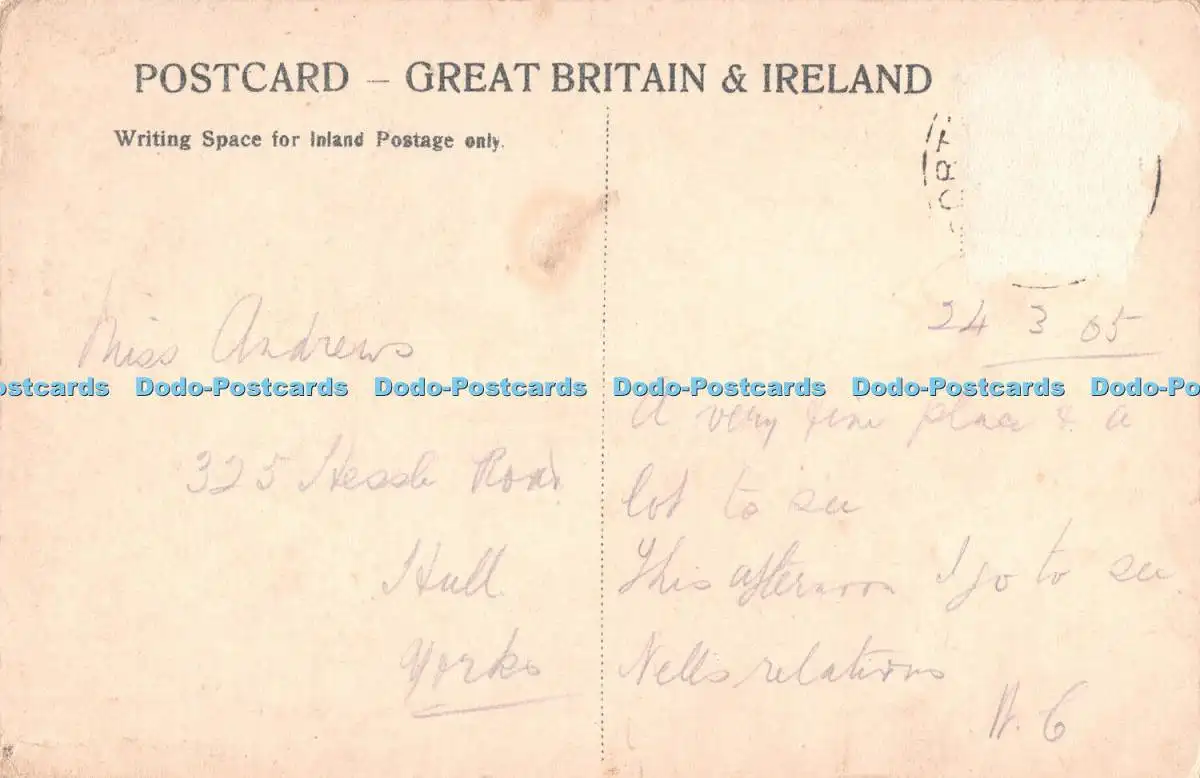 POSTCARD – GREAT BRITAIN & IRELAND
Writing Space for Inland Postage only.
Miss Andrews
325 Hessle Road
Hull
Yorks
24 3 05
A very fine place & a
lot to see
This afternoon I go to see
Nells relations
H. C
Dodo-Postcards Dodo-Postcards Dodo-Postcards Dodo-Postcards Dodo-Postcards